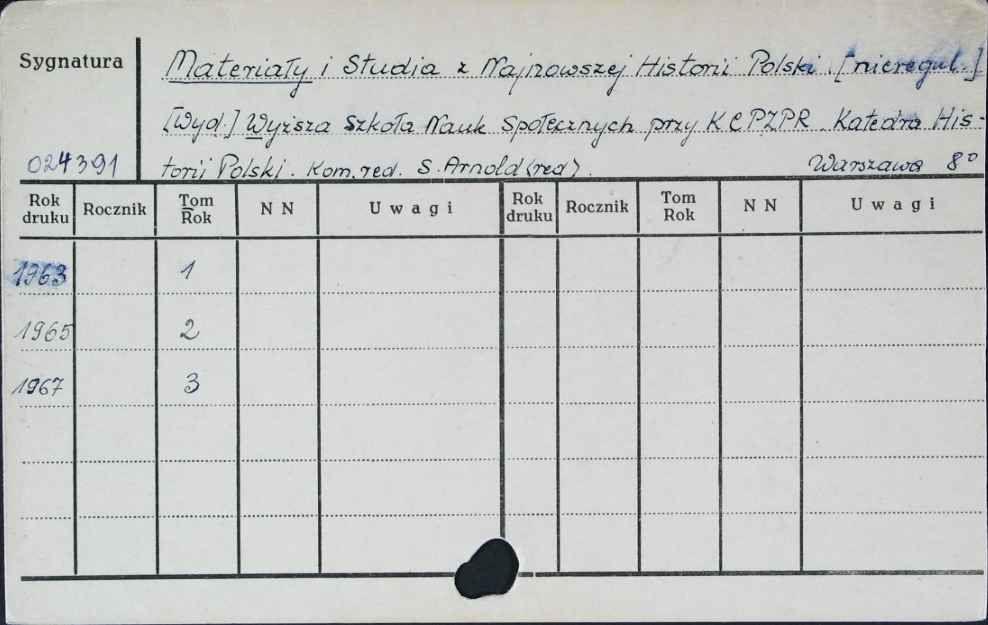 Sygnatura
Materiały i Studia z Najnowszej Historii Polski. [nieregul.]
[Wyd.] Wyższa Szkoła Nauk Społecznych przy KCPZPR. Katedra His-
024391 torii Polski. Kom. red. S. Arnold (red). Warszawa 8°
Rok druku Rocznik Tom Rok N N Uwagi Rok druku Rocznik Tom Rok N N Uwagi
1963 1
1965 2
1967 3